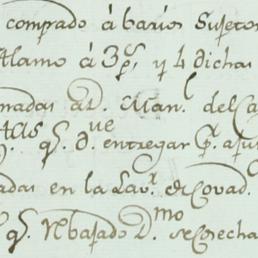 comprado á barios Sujetos
Alamo á 3 p.s, y 4 dichas
nadas a D. Man.l del Ca
q.e d.ue entregar p.r ajus
adas en la Lav.r de Covad.
q.e Rebajado D.mo se cosecha